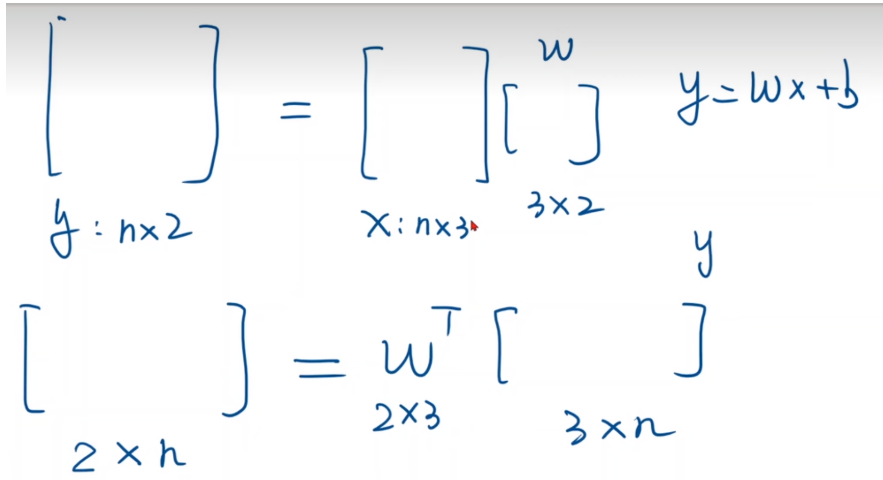 [ ] = [ ] [ ] y = wx + b
w
y : n×2 x : n×3 3×2
y
[ ] = wᵀ [ ]
2×3
2 × n 3 × n